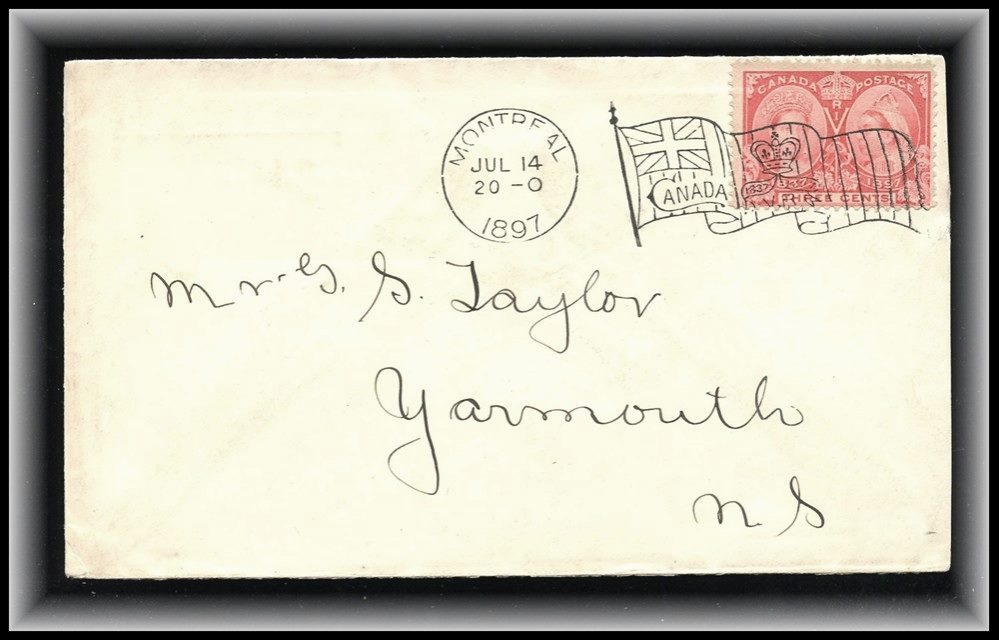 CANADA POSTAGE
V R
MONTREAL
JUL 14
20-0
1897
CANADA
1837
1837 1897
THREE CENTS
Mr. G. S. Taylor
Yarmouth
N. S